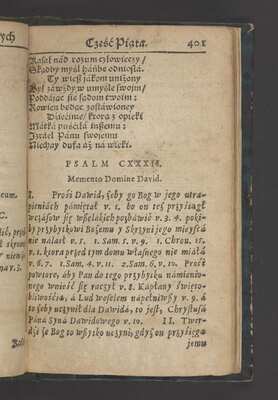 Część Piąta. 401
Násał nád rozum człowieczy/
Skądby myśl háńbę odniosłá.
Ty wiesz jákom uniżony
Był záwżdy w umyśle swoim/
Poddájąc się sądom twoim:
Rowien będąc zostáwioney
Dziecinie/ którą z opieki
Mátká puściłá inszemu:
Izráel Pánu swojemu
Niechay dufa áż ná wieki.
PSALM CXXXII.
Memento Domine David.
I. Prosi Dawid, żeby go Bog w jego utra-
pieniách pámiętał v. 1. bo on też przyśiągł
wczásow się wszelákich pozbáwić v. 3. 4. poki-
by przybytkowi Bożemu y Skrzyni jego mieyscá
nie nálazł v. 5. 1. Sam. 5. v. 9. 1. Chron. 15.
v. 1. ktora przed tym domu własnego nie miáłá
v. 6. 7. 1. Sam. 4. v. 11. 2. Sam. 6. v. 10. Prosi
powtore, áby Pan do tego przybytku námienio-
nego wnieść się raczył v. 8. Kápłany święto-
bliwośćią, á Lud weselem nápełniwszy v. 9. á
to żeby uczynił dla Dawidá, to jest, Chrystusá
Páná Syná Dawidowego v. 10. II. Twier-
dzi że Bog to wszytko uczyni, gdyż on przyśięgą
jemu